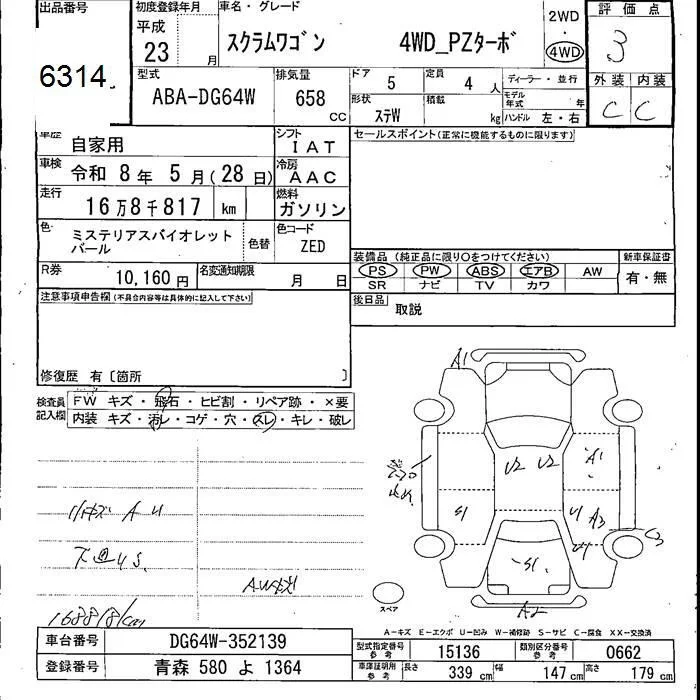 出品番号 初度登録年月 車名・グレード 評価点
平成 23 月 スクラムワゴン 4WD_PZターボ 2WD・4WD 3
6314
型式 排気量 ドア 5 定員 4 人 ディーラー・並行 外装 内装
ABA-DG64W 658 CC 形状 ステW 積載 kg モデル年式 年 ハンドル 左・右 C C
車歴 自家用 シフト IAT セールスポイント(正常に機能するものに限ります)
車検 令和 8 年 5 月(28 日) 冷房 AAC
走行 16万8千817 km 燃料 ガソリン
色 ミステリアスバイオレット 色替 色コード ZED
パール
装備品(純正品に限り○をつけてください) 新車保証書
R券 10,160円 名変通知期限 月 日 PS PW ABS エアB AW 有・無
SR ナビ TV カワ
注意事項申告欄(不具合内容等は具体的に記入して下さい) 後日品 取説
修復歴 有〔箇所 〕
検査員記入欄 FW キズ・飛石・ヒビ割・リペア跡・×要
内装 キズ・汚レ・コゲ・穴・スレ・キレ・破レ
A1
U2 U2 A1
A3
S1
A U
A2
スペア
168818km
A-キズ E-エクボ U-凹み W-補修跡 S-サビ C-腐食 XX-交換済
車台番号 DG64W-352139 型式指定番号 参考 15136 類別区分番号 参考 0662
登録番号 青森 580 よ 1364 車庫証明用 参考 長さ 339 cm 幅 147 cm 高さ 179 cm